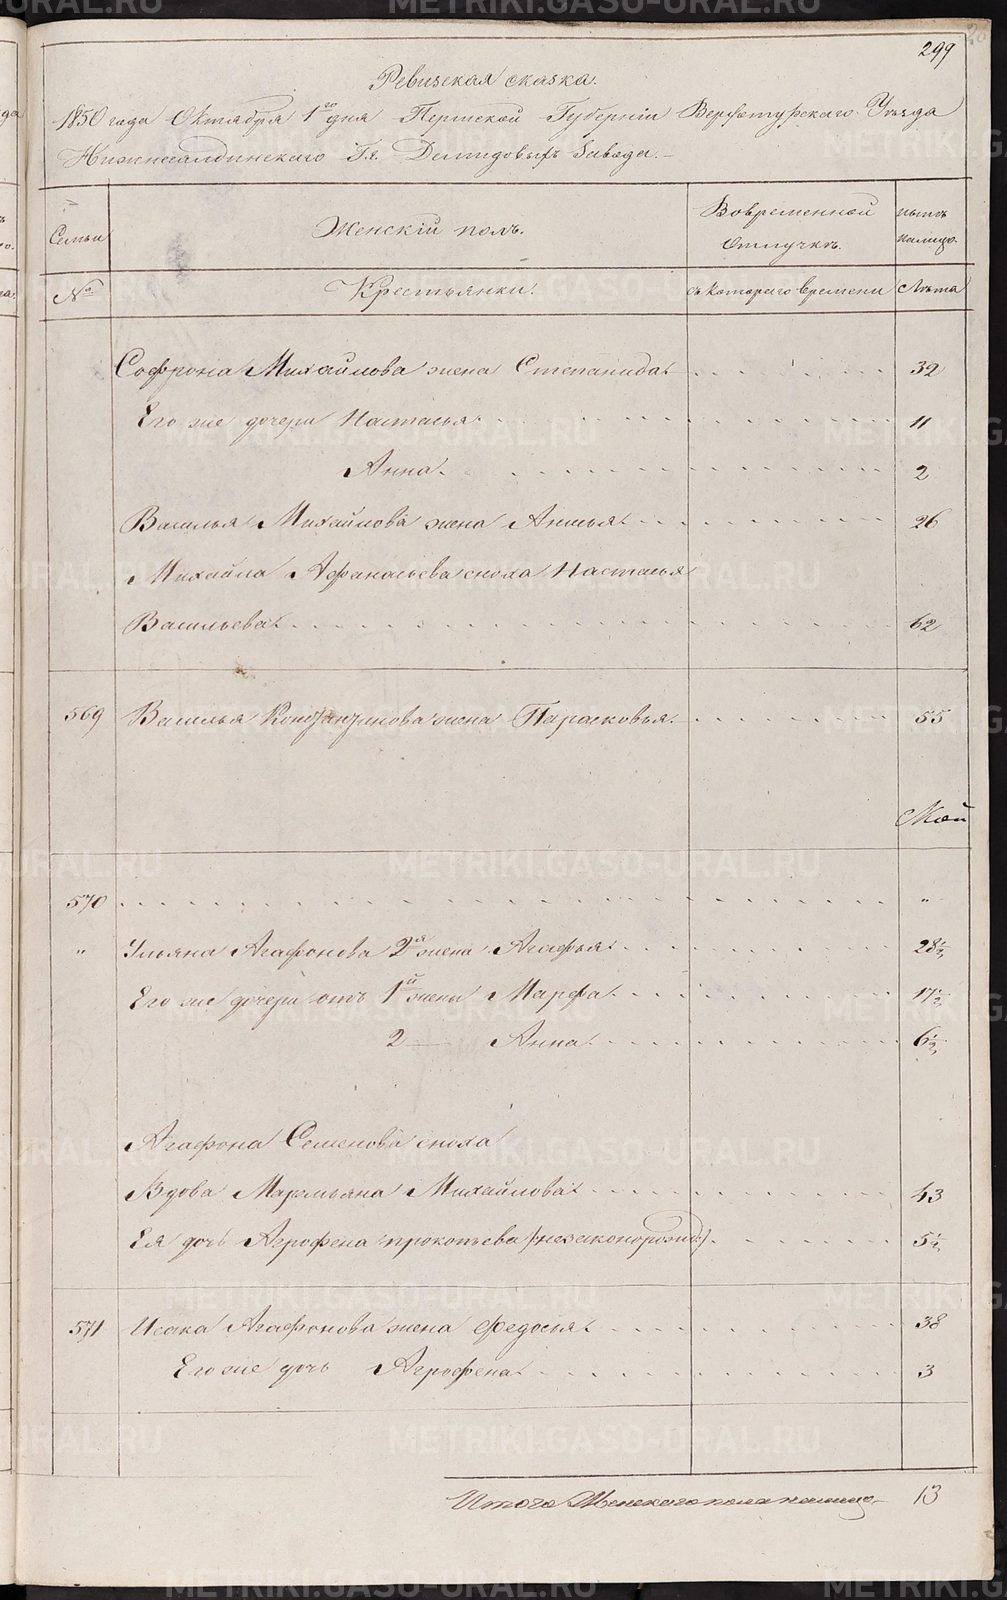 299
Ревизская сказка.
1850 года Октября 1го дня Пермской Губерніи Верхотурскаго Уѣзда
Нижнесалдинскаго Гг. Демидовыхъ Завода.
Семьи
Женскій полъ.
Во временной отлучкѣ.
нынѣ налицо.
№
Крестьянки.
съ котораго времени
Лѣта
Софрона Михайлова жена Степанида 32
Его же дочери Настасья 11
Анна 2
Василья Михайлова жена Анисья 26
Михайла Афанасьева сноха Настасья
Васильева 62
569 Василья Константинова жена Парасковья 55
570 "
" Ульяна Агафонова 2я жена Агафья 28½
Его же дочери отъ 1й жены Марфа 17½
2 — Анна 6½
Агафона Семенова сноха
Вдова Маремьяна Михайлова 43
Ея дочь Агрофена прокопьева (незаконорожд:) 5½
571 Исака Агафонова жена Федосья 38
Его же дочь Агрофена 3
Итого Женскаго пола налицо 13
METRIKI.GASO-URAL.RU